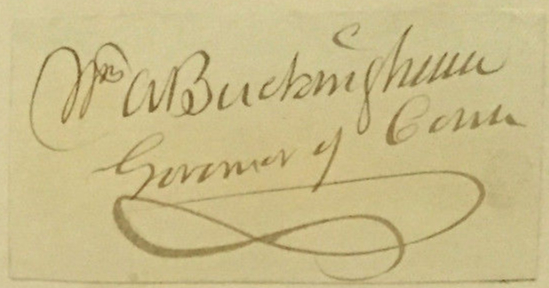 Wm A Buckingham
Governor of Conn